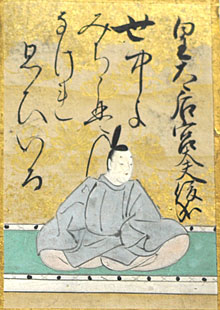 皇太后宮大夫俊成
世中よ
みちこそ
なけれ
思ひいる